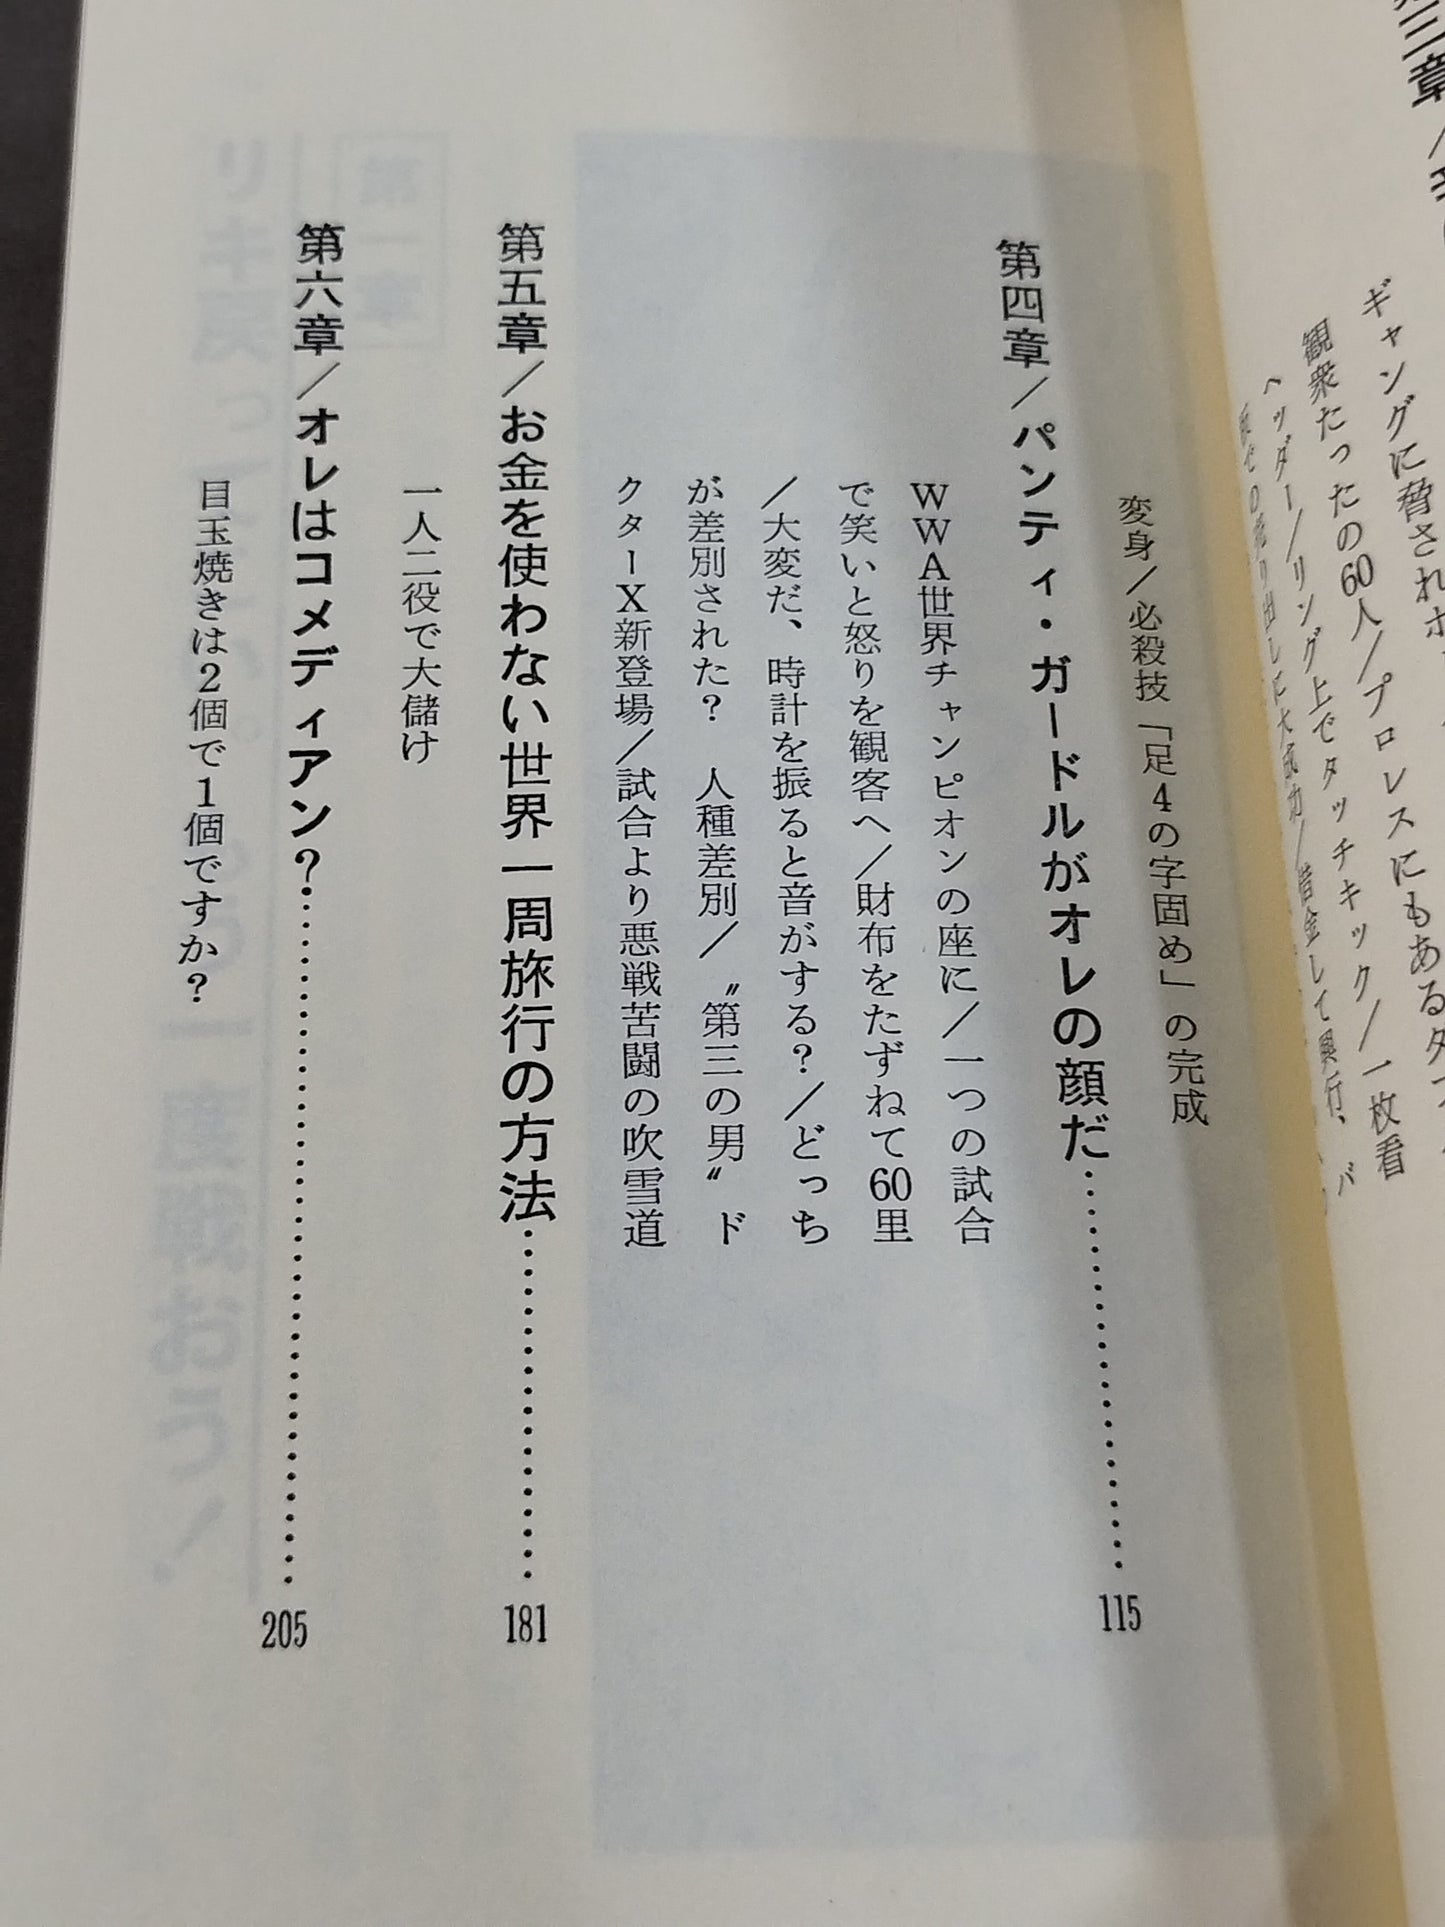 三章
ギャングに脅され
にもあるタ
観衆たったの60人/プロレス
ヘッダー/リング上でタッチキック/一枚看
借金して興行、バ
変身/必殺技「足4の字固め」の完成
第四章/パンティ・ガードルがオレの顔だ…………115
WWA世界チャンピオンの座に/一つの試合
で笑いと怒りを観客へ/財布をたずねて60里
/大変だ、時計を振ると音がする?/どっち
が差別された? 人種差別/〝第三の男〟ド
クターX新登場/試合より悪戦苦闘の吹雪道
第五章/お金を使わない世界一周旅行の方法…………181
一人二役で大儲け
第六章/オレはコメディアン?…………205
目玉焼きは2個で1個ですか?